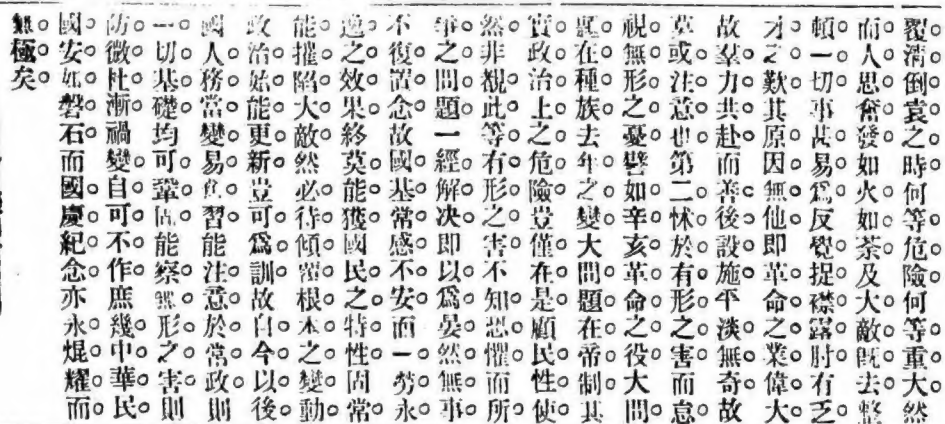 覆清倒袁之時何等危險何等重大然
而人思奮發如火如荼及大敵既去整
頓一切事甚易爲反覺捉襟露肘有乏
才之歎其原因無他即革命之業偉大
故羣力共赴而善後設施平淡無奇故
莫或注意也第二怵於有形之害而怠
視無形之憂譬如辛亥革命之役大問
題在種族去年之變大問題在帝制其
實政治上之危險豈僅在是顧民性使
然非覩此等有形之害不知恐懼而所
爭之問題一經解决即以爲晏然無事
不復置念故國基常感不安而一勞永
逸之效果終莫能獲國民之特性固常
能摧陷大敵然必待傾覆根本之變動
政治始能更新豈可爲訓故自今以後
國人務當變易舊習能注意於常政則
一切基礎均可鞏固能察無形之害則
防微杜漸禍變自可不作庶幾中華民
國安如磐石而國慶紀念亦永焜耀而
無極矣